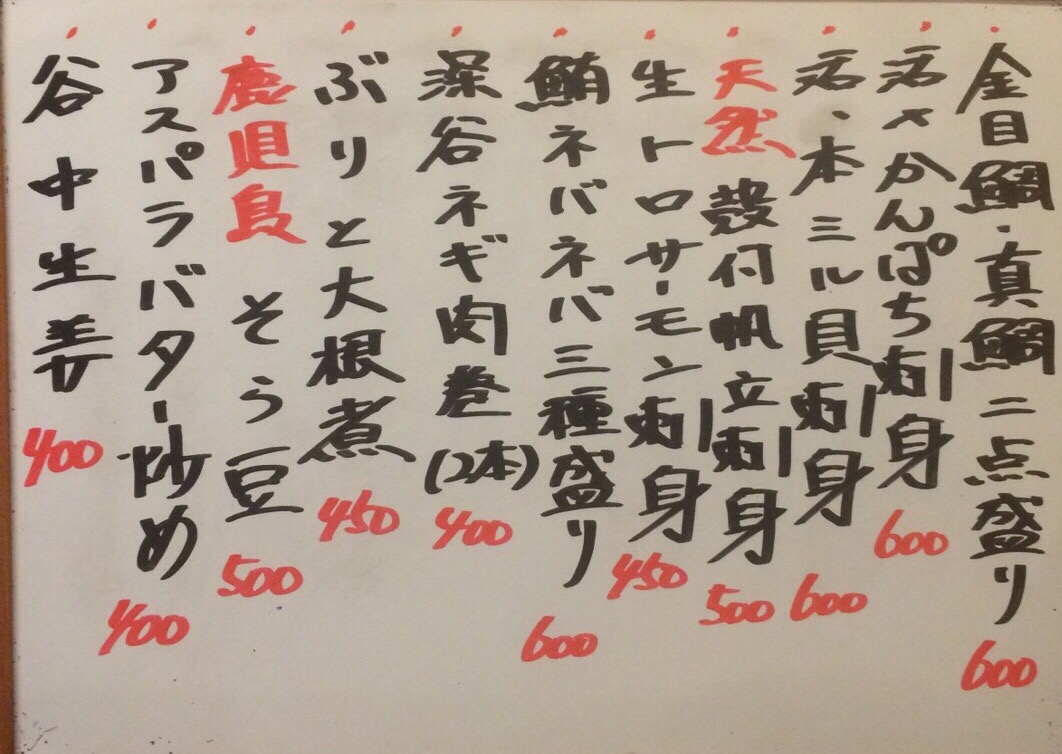 金目鯛・真鯛二点盛り 600
活〆かんぱち刺身 600
活・本ミル貝刺身 600
天然 殻付帆立刺身 500
生トロサーモン刺身 450
鮪ネバネバ三種盛り 600
深谷ネギ肉巻(2本) 400
ぶりと大根煮 450
鹿児島 そら豆 500
アスパラバター炒め 400
谷中生姜 400